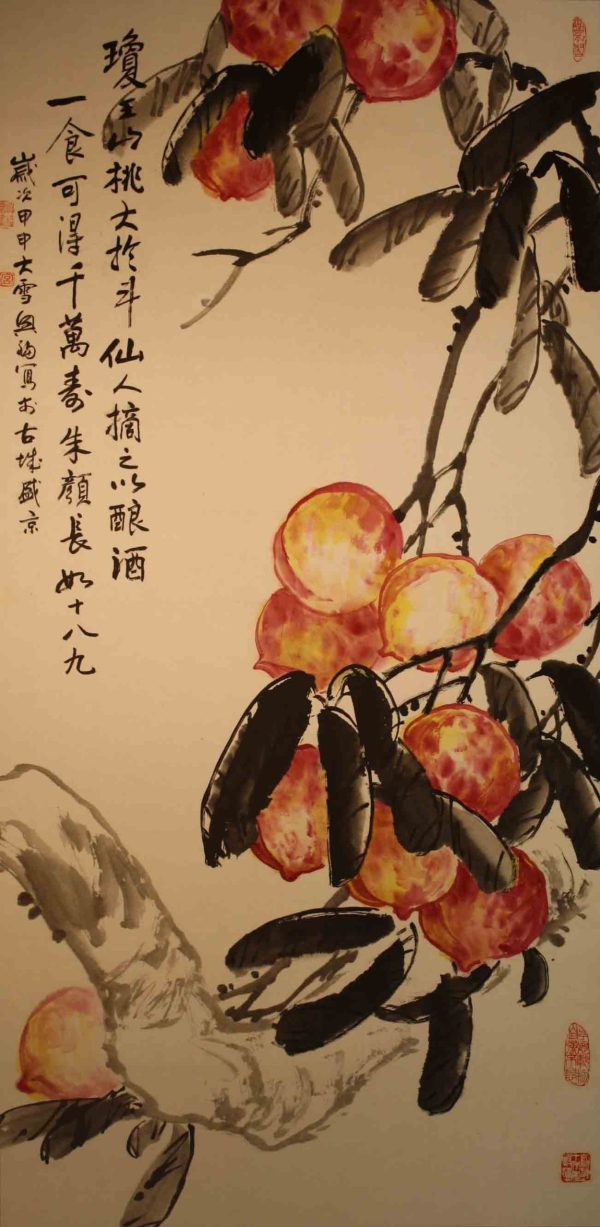 瓊玉山桃大扵斗仙人摘之以酿酒
一食可得千萬寿朱顏長如十八九
歲次甲申大雪寫扵古城盛京